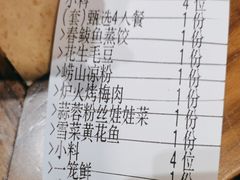 小料 4位
(套)甄选4人餐 1份
>春鲅鱼蒸饺 1份
>花生毛豆 1份
>崂山凉粉 1份
>炉火烤梅肉 1份
>蒜蓉粉丝娃娃菜 1份
>雪菜黄花鱼 1份
>小料 4位
>一笼鲜 1份